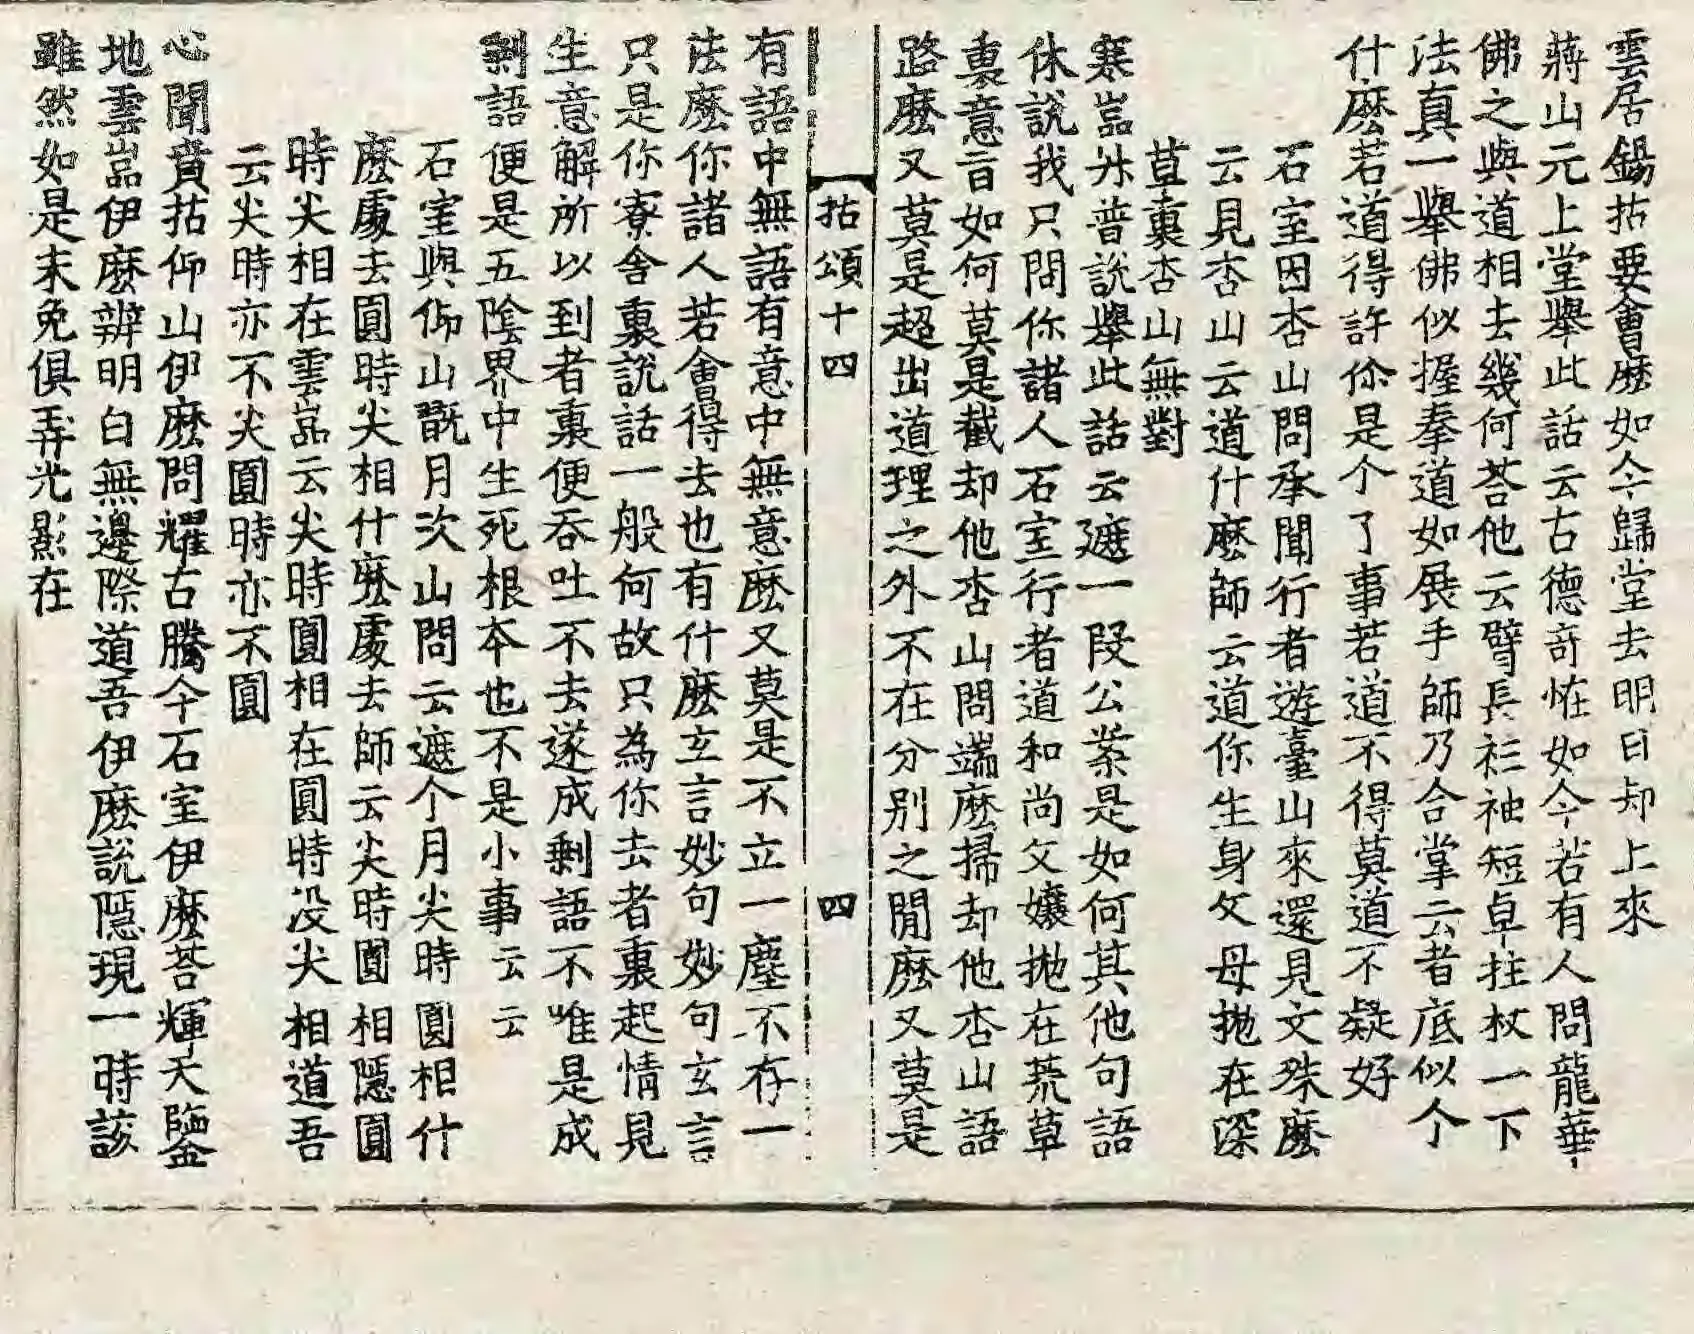 雲居錫拈要會麽如今歸堂去明日却上來
蔣山元上堂擧此話云古德奇恠如今若有人問龍華
佛之與道相去幾何荅他云臂長衫袖短卓拄杖一下
法真一擧佛似握拳道如展手師乃合掌云者底似个
什麽若道得許你是个了事若道不得莫道不疑好
石室因杏山問承聞行者遊臺山來還見文殊麽
云見杏山云道什麽師云道你生身父母抛在深
草裏杏山無對
寒嵓升普說擧此話云遮一段公案是如何其他句語
休說我只問你諸人石室行者道和尚父孃抛在荒草
裏意旨如何莫是截却他杏山問端麽掃却他杏山語
路麽又莫是超出道理之外不在分別之間麽又莫是
拈頌十四 四
有語中無語有意中無意麽又莫是不立一塵不存一
法麽你諸人若會得去也有什麽玄言妙句妙句玄言
只是你寮舍裏說話一般何故只為你去者裏起情見
生意解所以到者裏便吞吐不去遂成剩語不唯是成
剩語便是五陰界中生死根本也不是小事云云
石室與仰山翫月次山問云遮个月尖時圓相什
麽處去圓時尖相什麽處去師云尖時圓相隱圓
時尖相在雲嵓云尖時圓相在圓時沒尖相道吾
云尖時亦不尖圓時亦不圓
心聞賁拈仰山伊麽問耀古騰今石室伊麽荅輝天鑒
地雲嵓伊麽辨明白無邊際道吾伊麽說隱現一時該
雖然如是未免俱弄光影在